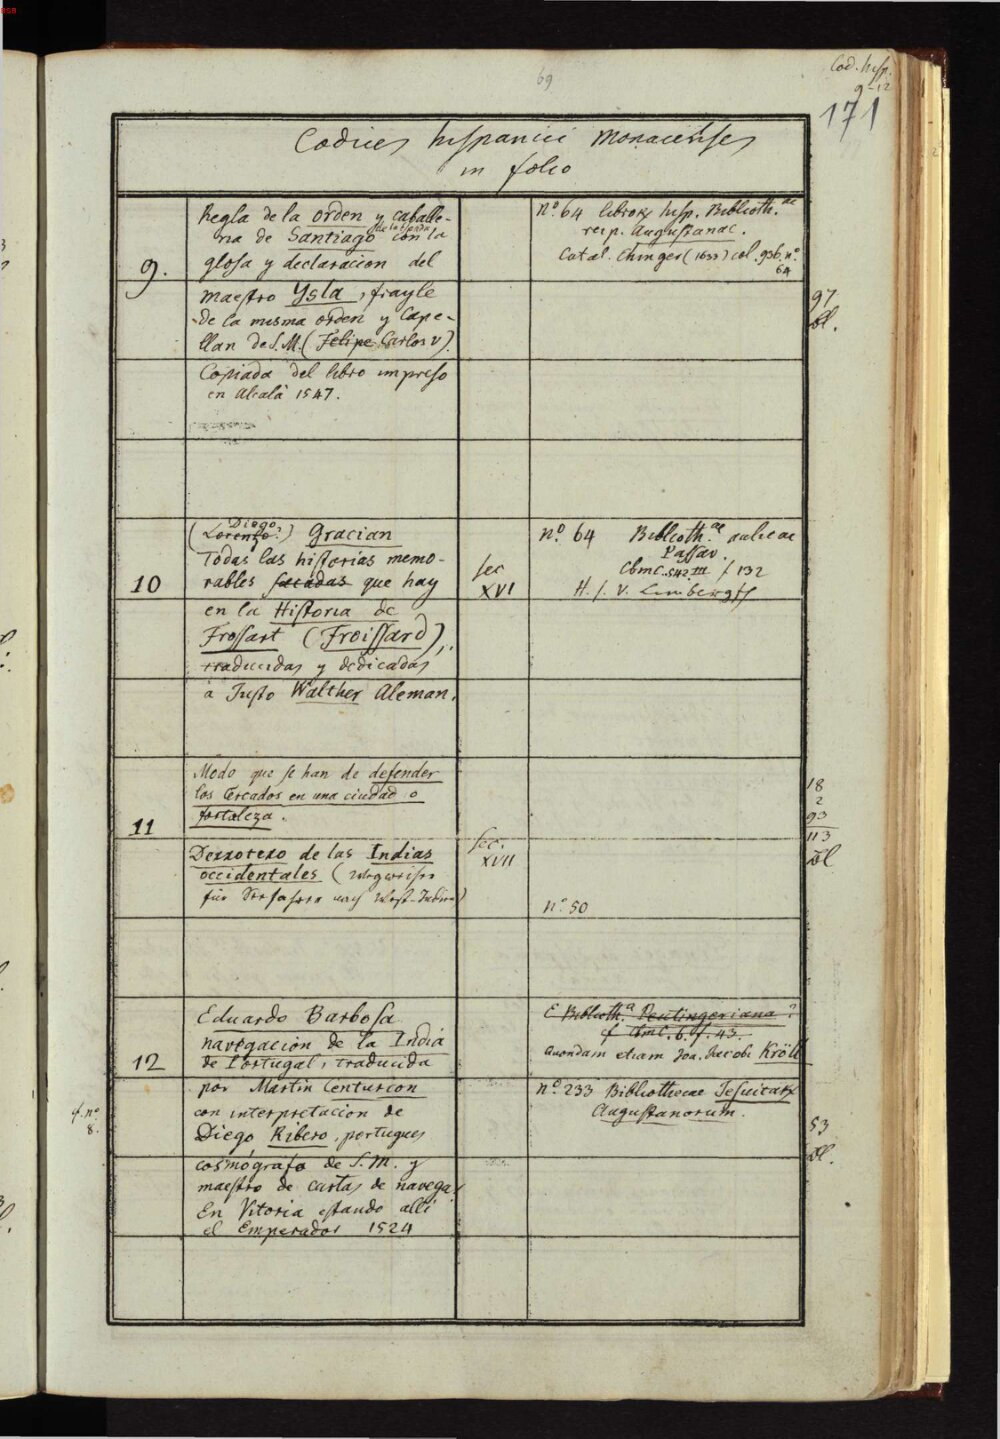 BSB
69
Cod. hisp.
9-12
171
Codices hispanici Monacenses
in folio
9.
Regla de la orden y caballe-
ria de Santiago de la Espada con la
glosa y declaracion del
maestro Ysla, frayle
de la misma orden y Cape-
llan de S. M. (Felipe Carlos V).
Copiada del libro impreso
en Alcalà 1547.
Nº 64 librorum hisp. Biblioth.ae
reip. Augustanae.
Catal. Ehinger (1633) col. 936, nº
64
97
Bl.
10
(Lorenzo? Diego) Gracian
Todas las historias memo-
rables sacadas que hay
en la Historia de
Frossart (Froissard),
traducidas y dedicadas
à Justo Walther Aleman.
sec
XVI
Nº 64 Biblioth.ae aulicae
Passav.
Cbmc. 542 III f 132
H. f. V.
11
Modo que se han de defender
los Cercados en una ciudad o
fortaleza.
Derrotero de las Indias
occidentales (Wegweiser
für Seefahrer nach West-Indien)
sec.
XVII
Nº 50
18
2
93
113
Bl
12
Eduardo Barbosa
navegacion de la India
de Portugal, traducida
por Martin Centurion
con interpretacion de
Diego Ribero, portugues
cosmógrafo de S. M. y
maestro de cartas de navegar
En Vitoria estando alli
el Emperador 1524
f. nº
8.
E Biblioth.a Peutingeriana?
cf Cbmc. 6. f. 43.
quondam etiam Joa. Jacobi Kröll
nº 233 Bibliothecae Jesuitarum
Augustanorum.
53
Bl.